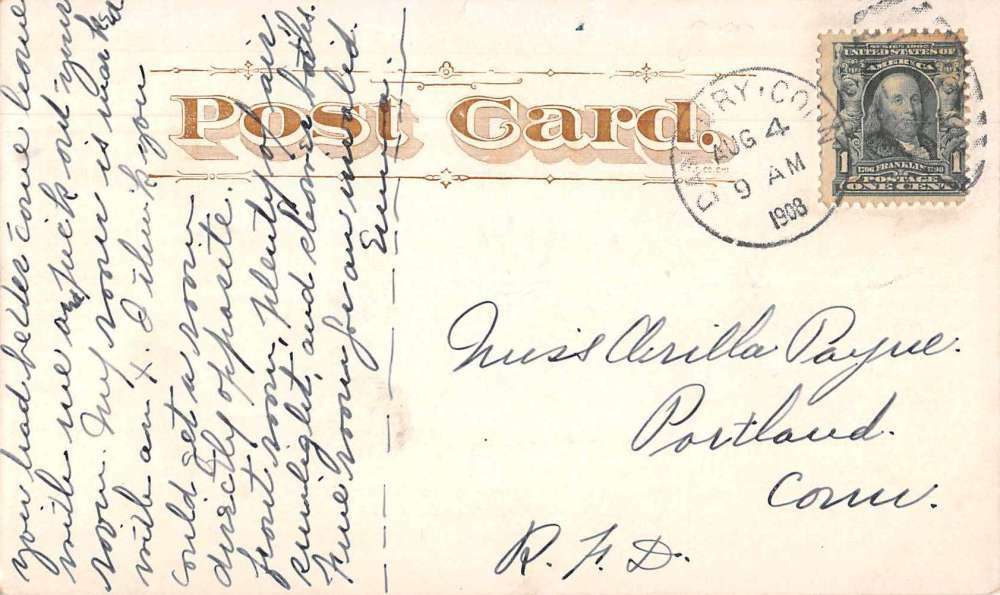 you had better come home
with me and pick out your
room. My room is marked
with an X. I think you
could get a room
directly opposite.
front room, plenty of air,
sunlight, and closet, baths.
Fine room for an invalid.
Emma.
Post Card.
DANBURY, CONN.
AUG 4
9 AM
1908
SERIES 1902
UNITED STATES OF
AMERICA
1 1
1706 FRANKLIN 1790
POSTAGE
ONE CENT
Miss Arilla Payne.
Portland.
Conn.
R. F. D.